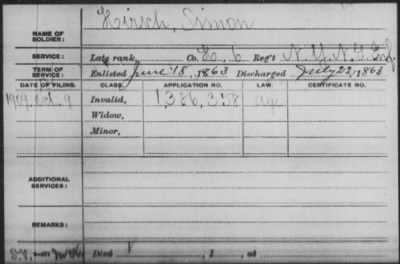 Hirsch, Simon
NAME OF SOLDIER:
SERVICE: Late rank, Co. 6 Reg't N.Y.N.G. Inf.
TERM OF SERVICE: Enlisted June 18, 1863 Discharged July 22, 1863
DATE OF FILING. CLASS. APPLICATION NO. LAW. CERTIFICATE NO.
1909 Oct. 9 Invalid, 1,386,358
Widow,
Minor,
ADDITIONAL SERVICES:
REMARKS:
Died , 1 , at